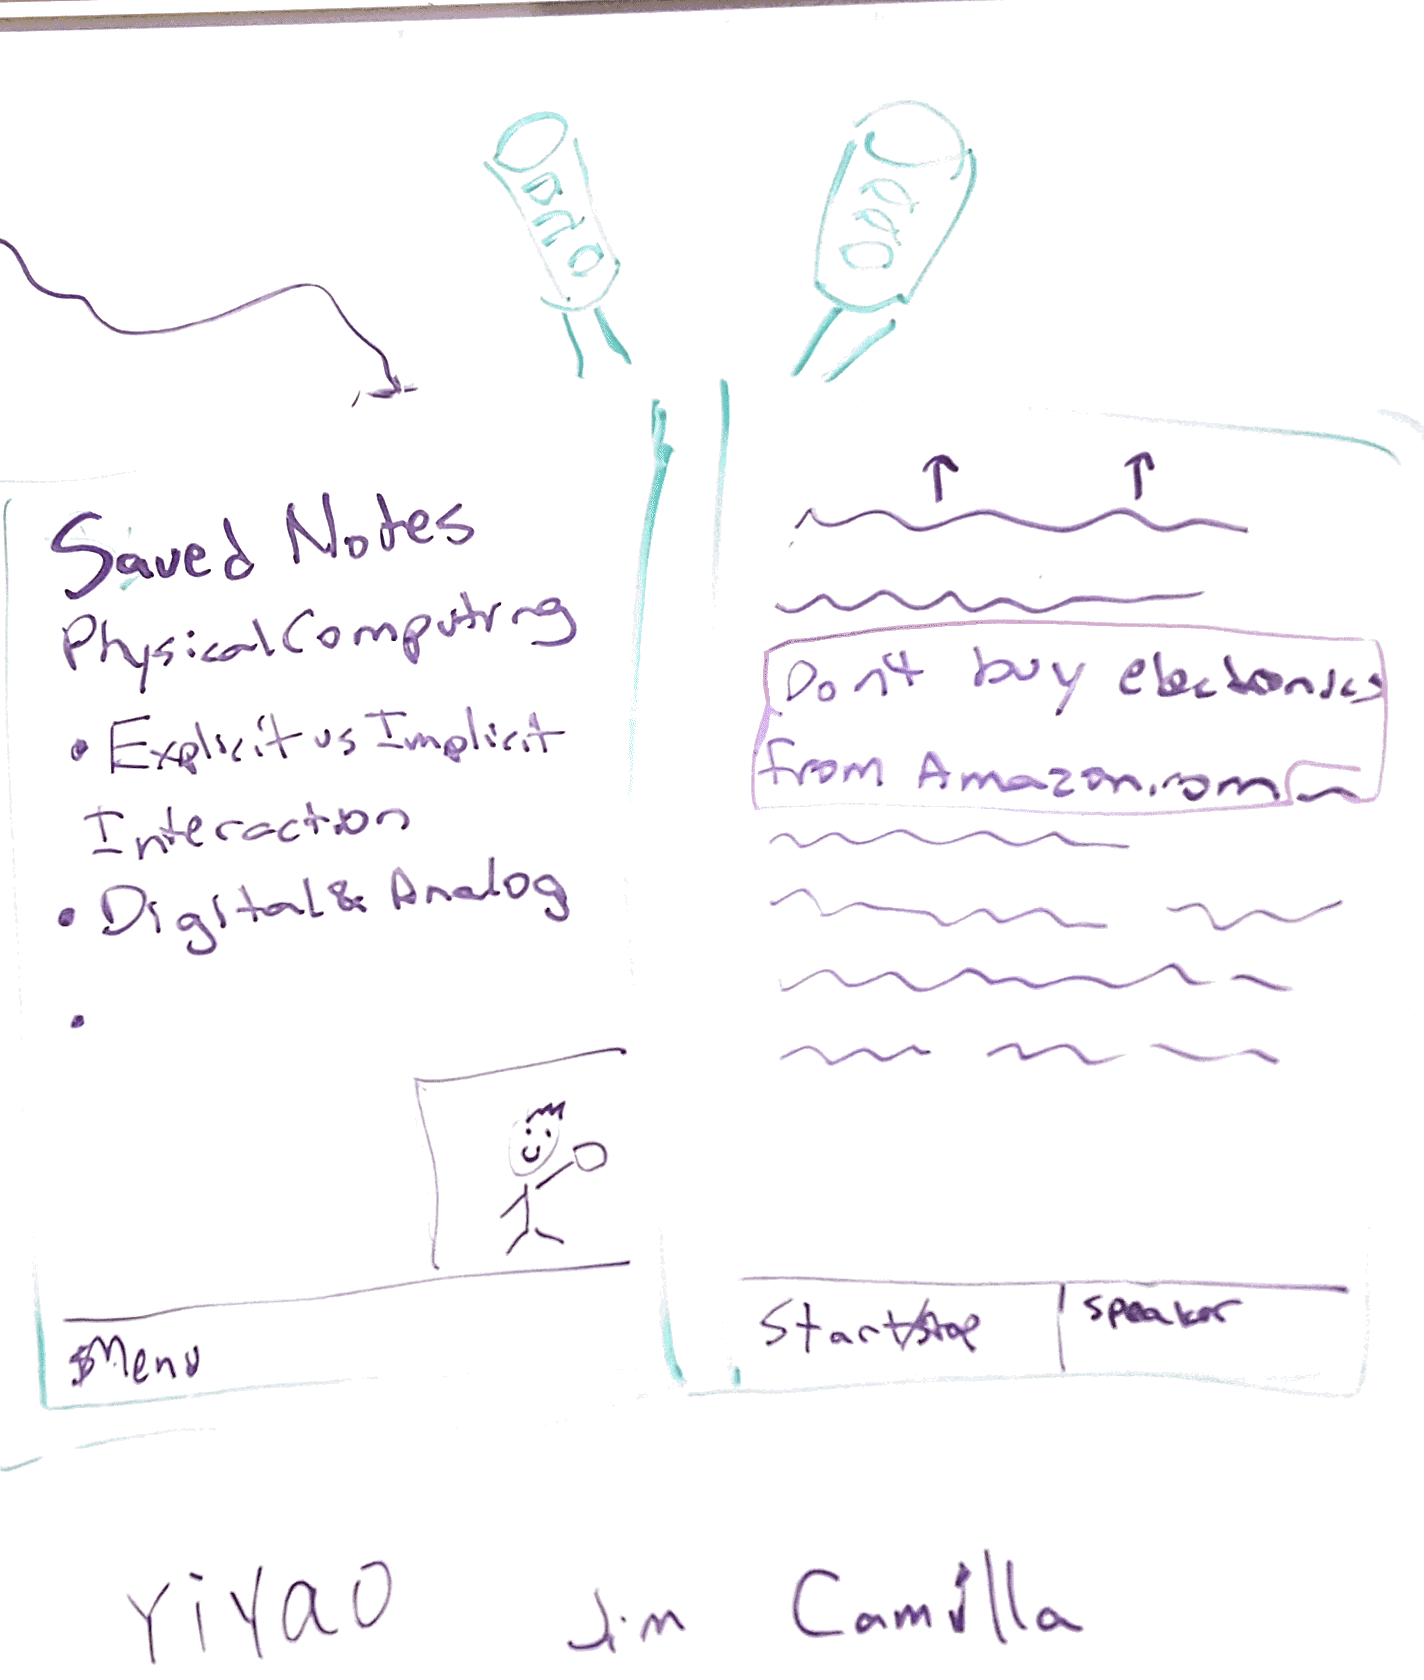 Saved Notes
Physical Computing
• Explicit vs Implicit
Interaction
• Digital & Analog
•
Menu
Don't buy electronics
from Amazon.com
Start/stop
speaker
YiYao Jim Camilla